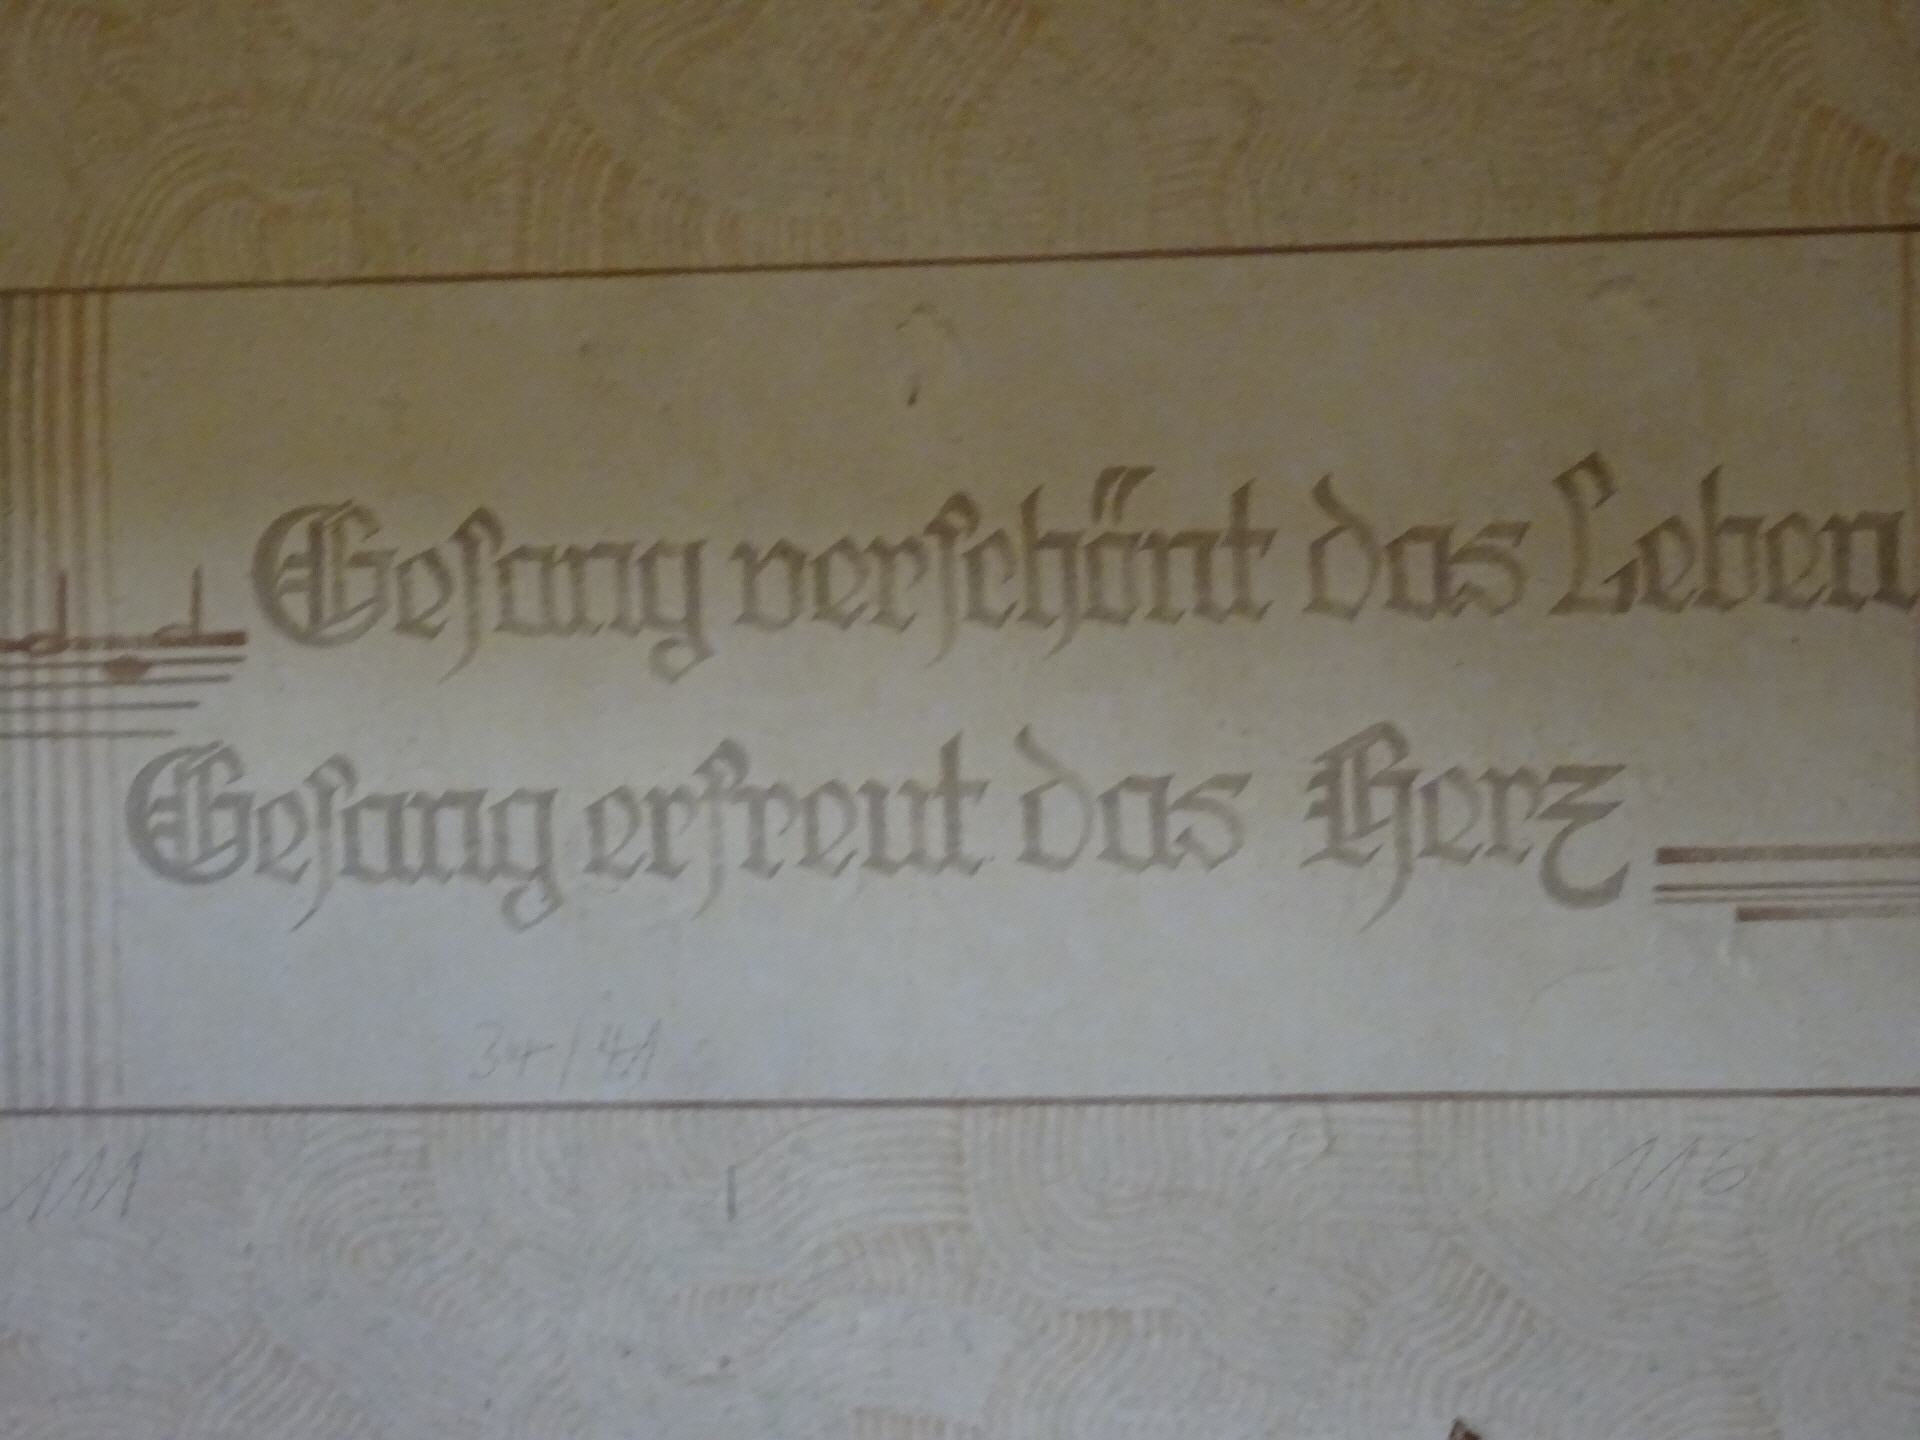 Gesang verschönt das Leben
Gesang erfreut das Herz
34/41
111
116